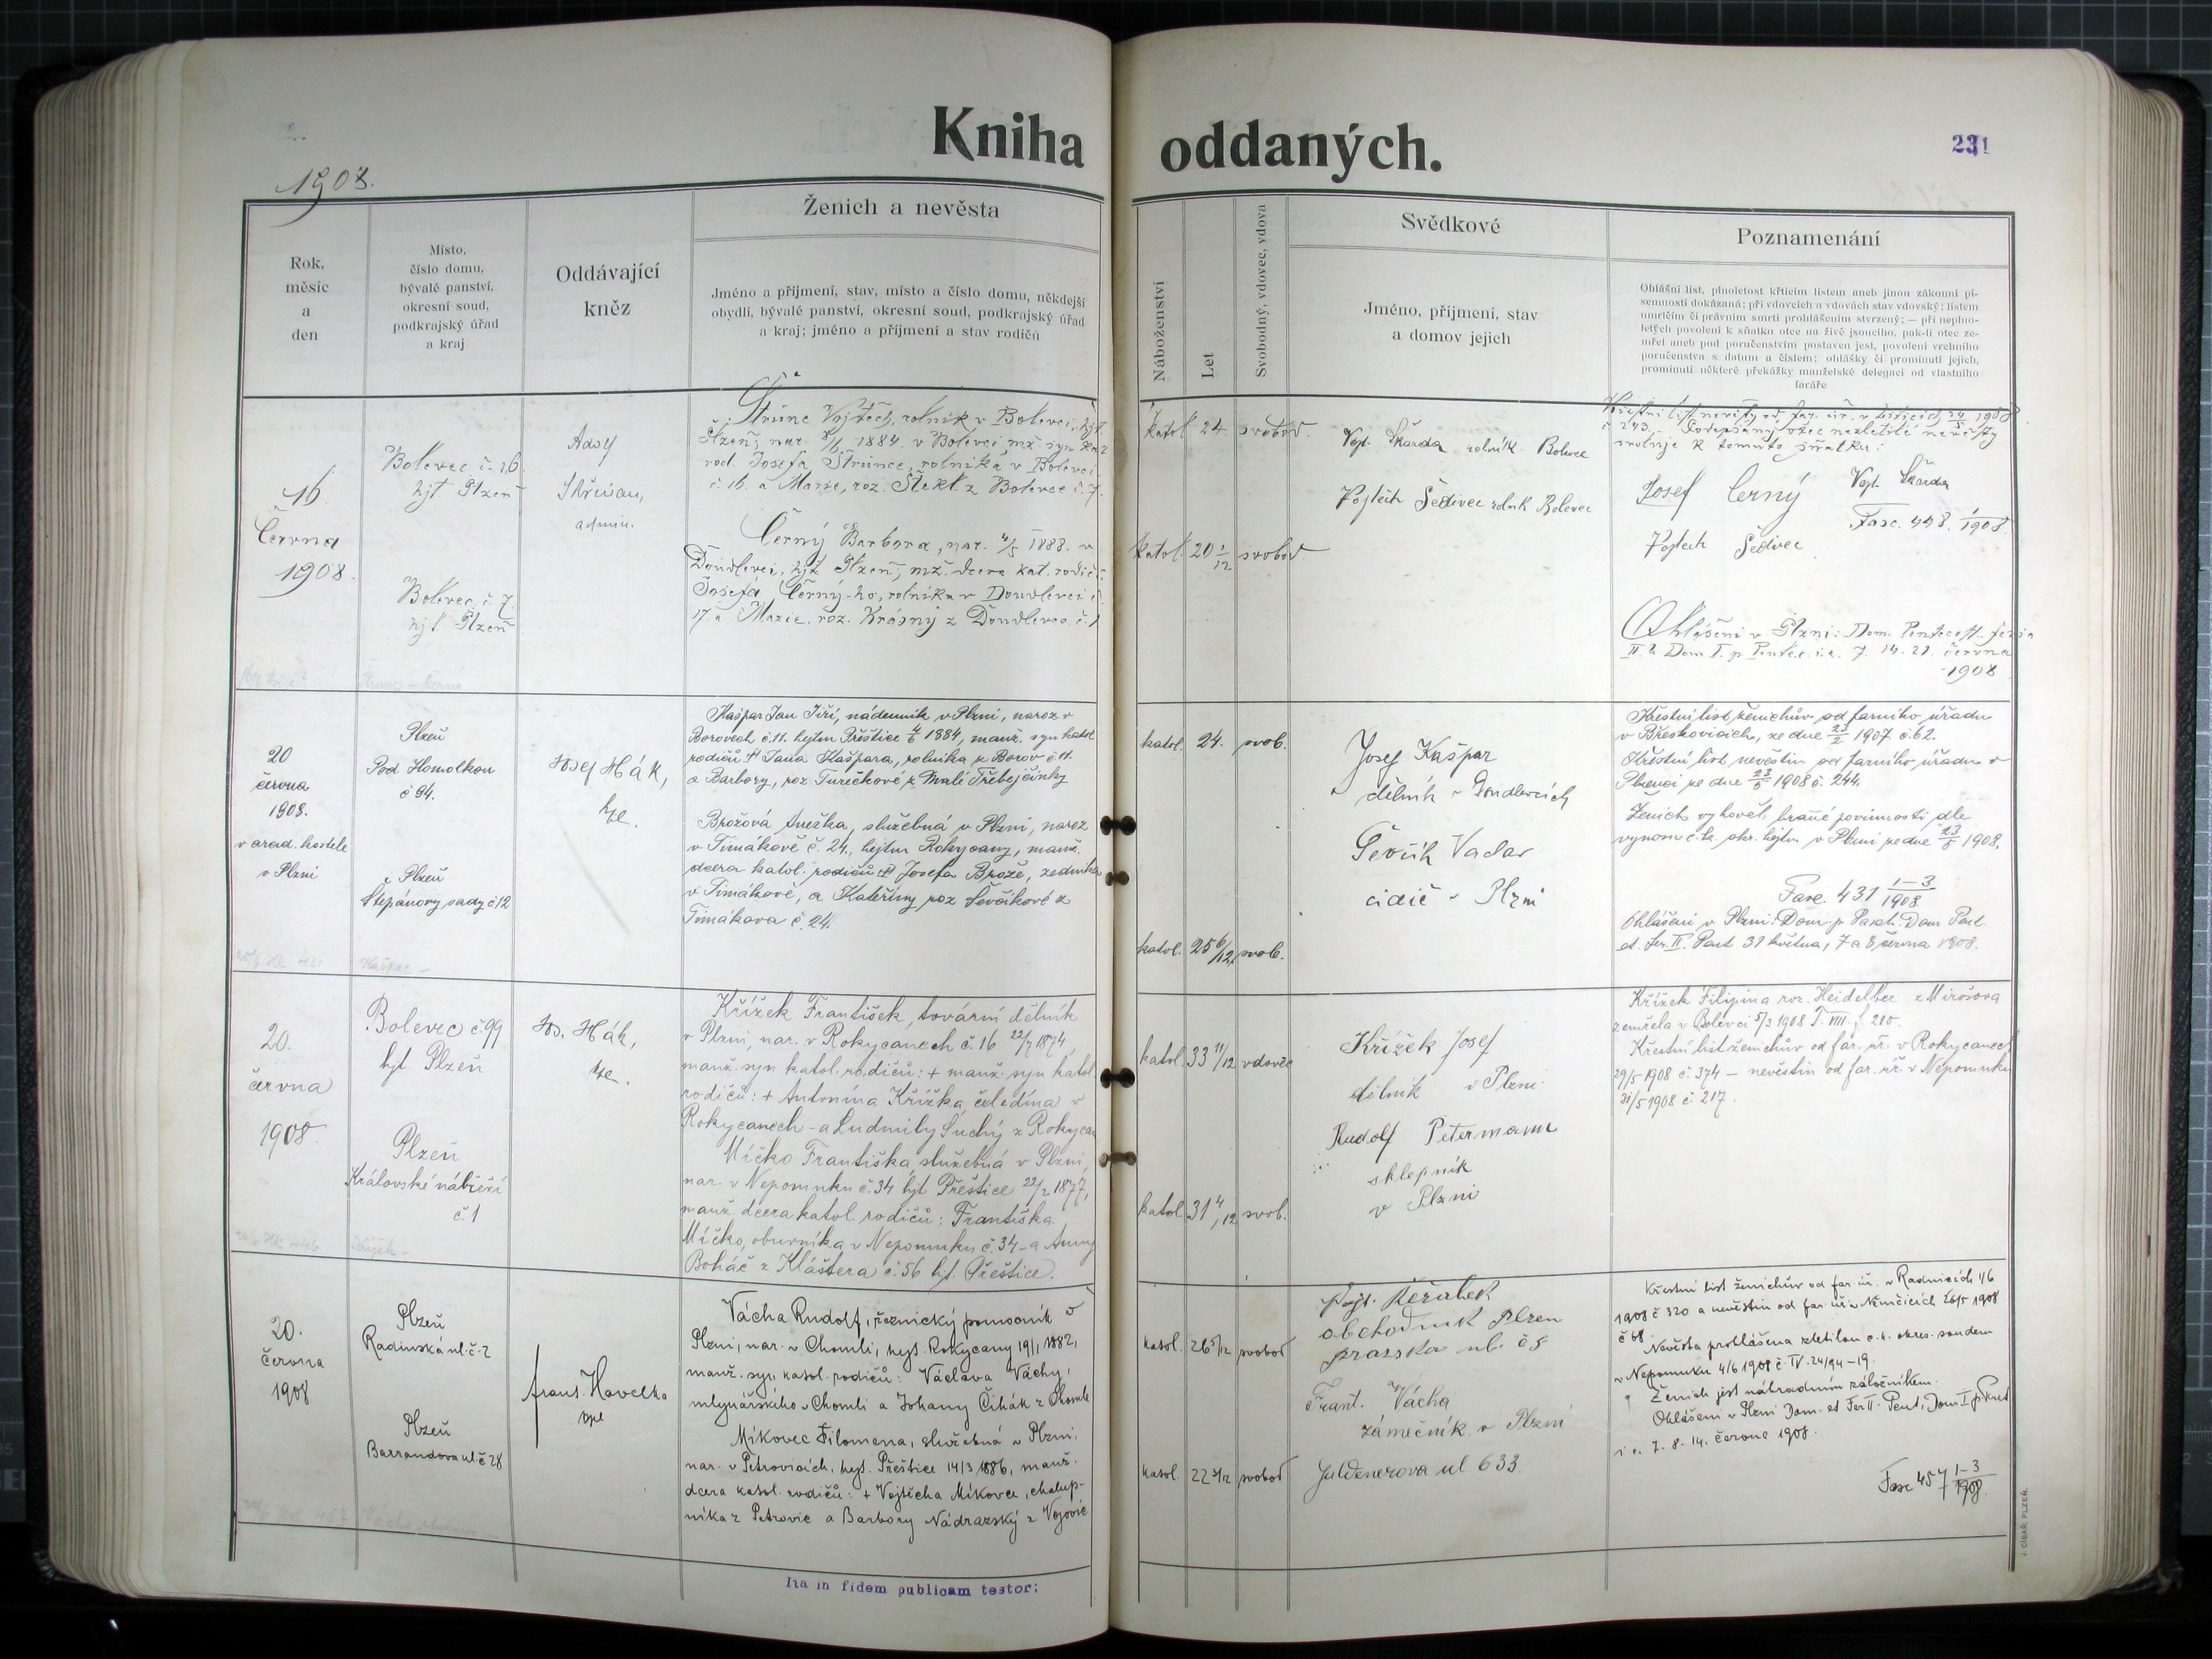 Kniha oddaných.
231
1908.
Rok,
měsíc
a
den
Místo,
číslo domu,
bývalé panství,
okresní soud,
podkrajský úřad
a kraj
Oddávající
kněz
Ženich a nevěsta
Jméno a příjmení, stav, místo a číslo domu, někdejší
obydlí, bývalé panství, okresní soud, podkrajský úřad
a kraj; jméno a příjmení a stav rodičů
Náboženství
Let
Svobodný, vdovec, vdova
Svědkové
Jméno, přijmení, stav
a domov jejich
Poznamenání
Ohlášní list, plnoletost křticím listem aneb jinou zákonní pí-
semností dokázaná; při vdovcích a vdovách stav vdovský; listem
umrlčím či právním smrti prohlášením stvrzený; — při neplno-
letých povolení k sňatku otce na živě jsoucího, pak-li otec ze-
mřel aneb pod poručenstvím postaven jest, povolení vrchního
poručenstva s datum a číslem; ohlášky či prominutí jejich,
prominutí některé překážky manželské delegací od vlastního
faráře
16.
Června
1908.
Bolevec č. 16
hjt Plzeň
Bolevec č. 7.
hjt Plzeň
Adolf
admin.
Štrunc Vojtěch, rolník v Bolevci, hjt.
Plzeň, nar. 1884. v Bolevci, mž. syn kat.
rod. Josefa Štrunce, rolníka v Bolevci
č. 16. a Marie, roz. Štekl z Bolevce č. 7.
Černý Barbora, nar. 4/5 1888. v
Doudlevci, hjt Plzeň, mž. dcera kat. rodičů
Josefa Černý-ho, rolníka v Doudlevci č.
17. a Marie, roz. Krásný z Doudlevce č. 1
katol. 24. svobod.
katol. 20 1/12 svobod.
Vojt. Škarda rolník Bolevec
Vojtěch Šedivec rolník Bolevec
Křestní list nevěsty od far. úř. v 1908
č. 243. Podepsaný otec nezletilé nevěsty
svoluje k tomuto sňatku:
Josef Černý Vojt. Škarda
Fasc. 448. 1/1908
Vojtěch Šedivec
Ohlášeni v Plzni: Dom. Pentecost. feria
II. & Dom I. p. Pentec. i. e. 7. 14. 21. června
1908
20
června
1908.
v arcid. kostele
v Plzni
Plzeň
Pod Homolkou
č 94.
Plzeň
Štěpánovy sady č 12
Josef Hák,
kpl.
Kašpar Jan Jiří, nádenník v Plzni, naroz v
Borovech č. 11. hejtm Přeštice 4/6 1884, manž. syn katol
rodičů † Jana Kašpara, rolníka z Borov č 11.
a Barbory, roz Turečkové z Malé Třebejčinky
Brožová Anežka, služebná v Plzni, naroz
v Timákově č. 24, hejtm Rokycany, manž.
dcera katol. rodičů † Josefa Brože, zedníka
v Timákově, a Kateřiny roz Ševčíkové z
Timákova č. 24.
katol. 24. svob.
katol. 25 6/12 svob.
Josef Kašpar
dělník v Doudlevcích
Ševčík Vaclav
cidič v Plzni
Křestní list ženichův od farního úřadu
v Břeskovicích, ze dne 23/2 1907 č. 62.
Křestní list nevěstin od farního úřadu v
ze dne 23/5 1908 č. 244.
Ženich vyhověl branné povinnosti dle
vynosu c. k. okr. hejtm v Plzni ze dne 23/5 1908.
Fasc. 431 1–3/1908
Ohlášeni v Plzni: Dom. p Pasch. Dom Pent
et. fer. II. Pent 31 května, 7 a 8 června 1908.
20.
června
1908.
Bolevec č. 99
hjt. Plzeň
Plzeň
Královské nábřeží
č. 1
Jos. Hák,
kpl.
Křížek František, tovární dělník
v Plzni, nar. v Rokycanech č. 16 22/7 1874,
manž. syn katol. rodičů: + manž. syn katol.
rodičů: + Antonína Křížka, čeledína v
Rokycanech – a Ludmily Suchý z Rokycan
Míčko Františka, služebná v Plzni,
nar. v Nepomuku č. 34 hjt Přeštice 22/2 1877,
manž. dcera katol. rodičů: Františka
Míčko, obuvníka v Nepomuku č. 34 – a Anny
Boháč z Kláštera č. 56 hjt. Přeštice.
katol. 33 11/12 vdovec
katol. 31 4/12 svob.
Křížek Josef
dělník v Plzni
Rudolf Petermann
sklepník
v Plzni
Křížek Filipína roz. Heidelber z Mirošova
zemřela v Bolevci 5/3 1908 T. VIII. f. 210.
Křestní list ženichův od far. úř. v Rokycanech
29/5 1908 č. 374 – nevěstin od far. úř. v Nepomuku
31/5 1908 č. 217.
20.
června
1908
Plzeň
Radinská ul. č. 2
Plzeň
Barrandova ul č 28
frant. Havelka
kpl
Vácha Rudolf, řeznický pomocník v
Plzni, nar. v Chomli, hejt. Rokycany 19/1 1882,
manž. syn katol. rodičů: Václava Váchy,
mlynářského v Chomli a Johany Čihák z Chomle
Míkovec Filomena, služebná v Plzni,
nar. v Petrovicích, hejt. Přeštice 14/3 1886, manž.
dcera katol. rodičů: + Vojtěcha Míkovce, chalup-
níka z Petrovic a Barbory Nádrazský z Vojovic
katol. 26 5/12 svobod
katol. 22 3/12 svobod
Vojt. Keřábek
obchodník Plzen
prazska ul. č 8
Frant. Vácha
zámečník v Plzni
Juldnerova ul 633.
Křestní list ženichův od far. úř. v Radnicích 1/6
1908 č 320 a nevěstin od far. úř v Němčicích 26/5 1908
č 68.
Nevěsta prohlášena zletilou c. k. okres. soudem
v Nepomuku 4/6 1908 č. IV. 24/94 – 19.
Ženich jest náhradním záložníkem.
Ohlášeni v Plzni Dom. et Fer II. Pent, Dom I p. Pent
i. e. 7. 8. 14. června 1908.
Fasc 457 1–3/1908.
Ita in fidem publicam testor:
J. CÍSAŘ, PLZEŇ.